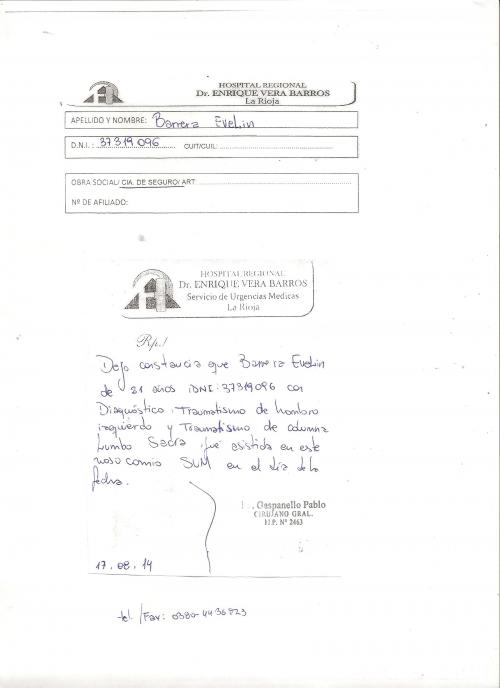 HOSPITAL REGIONAL
Dr. ENRIQUE VERA BARROS
La Rioja
APELLIDO Y NOMBRE: Barrera Evelin
D.N.I. : 37319096 CUIT/CUIL:
OBRA SOCIAL/ CIA. DE SEGURO/ ART
Nº DE AFILIADO:
HOSPITAL REGIONAL
Dr. ENRIQUE VERA BARROS
Servicio de Urgencias Medicas
La Rioja
Rp./
Dejo constancia que Barrera Evelin
de 21 años DNI: 37319096 con
Diagnóstico: Traumatismo de hombro
izquierdo y Traumatismo de columna
Lumbo Sacra fue asistida en este
nosocomio SUM en el dia de la
fecha.
Gaspanello Pablo
CIRUJANO GRAL.
M.P. Nº 2463
17.08.14
tel. /Fax: 0380-4436823